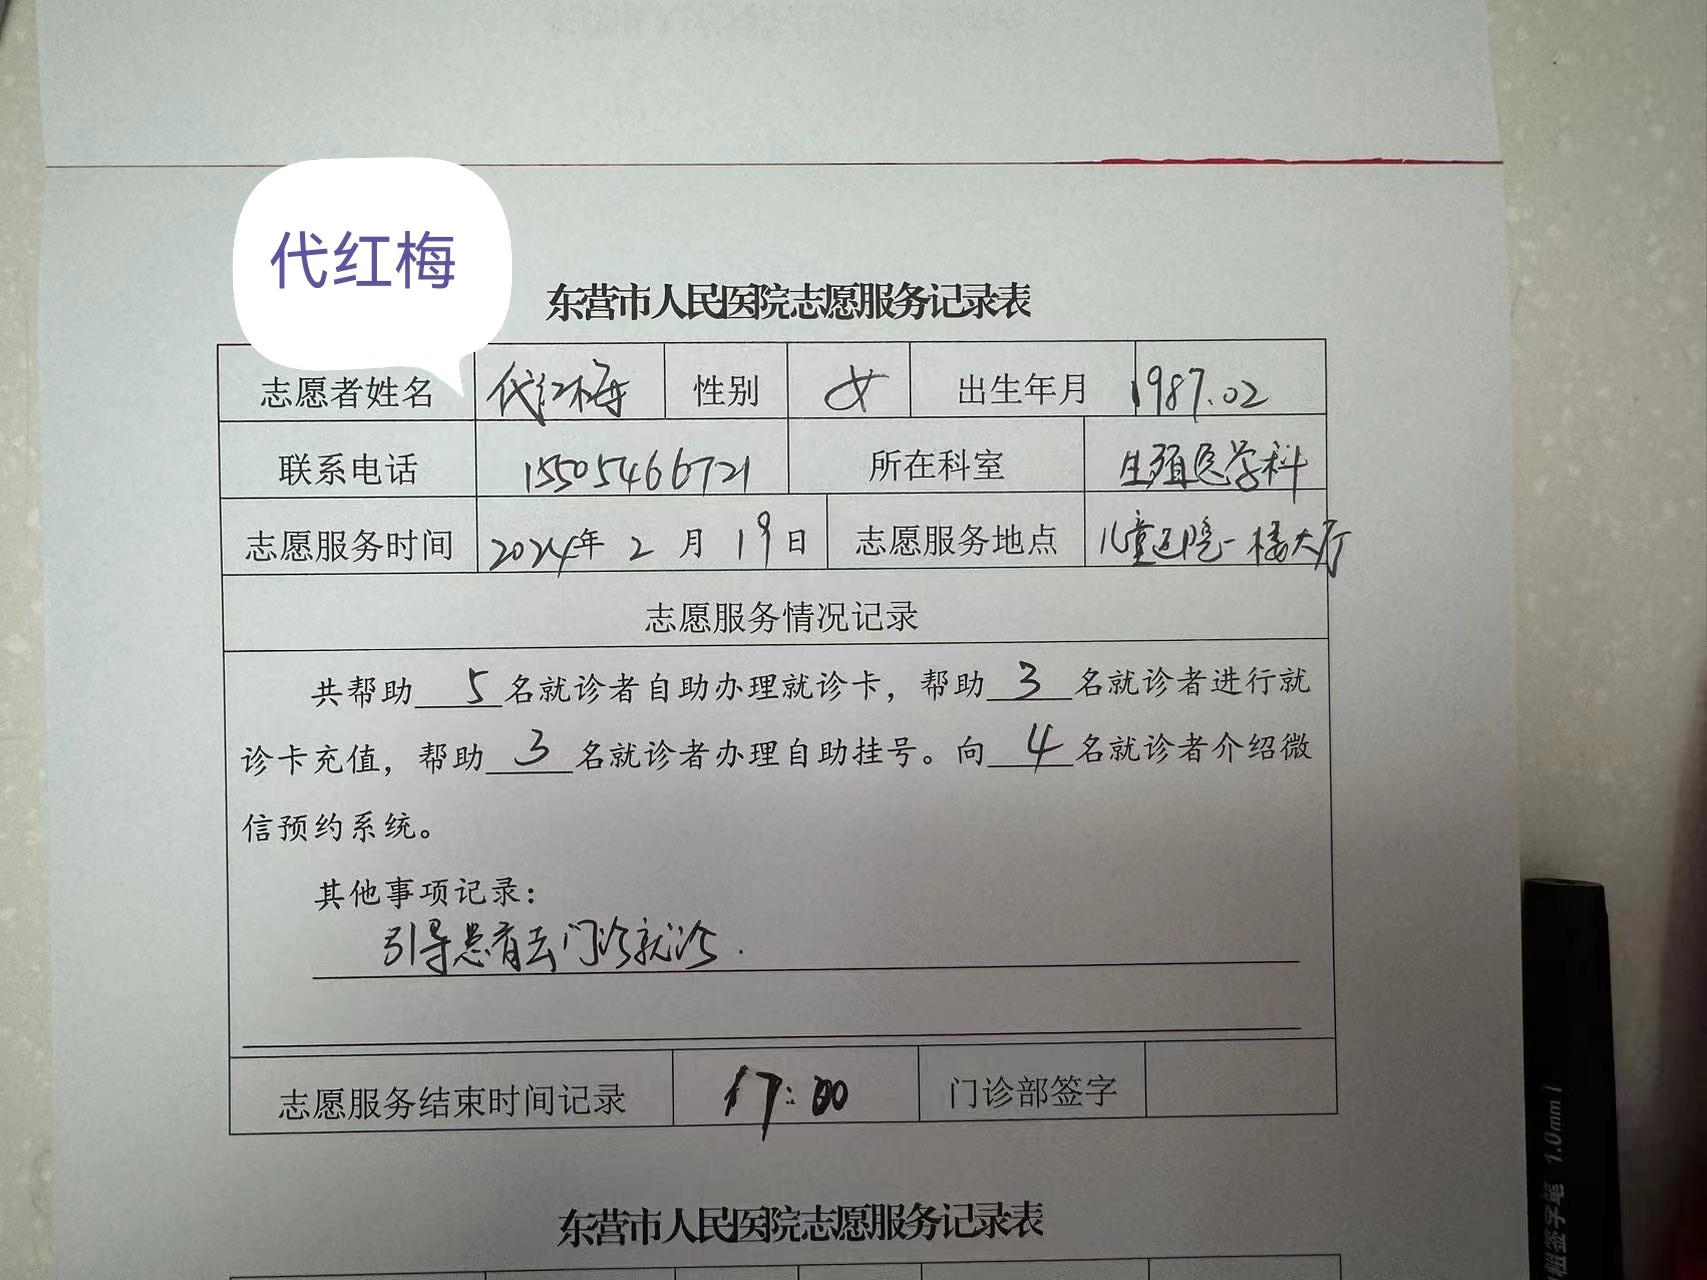 代红梅
东营市人民医院志愿服务记录表
志愿者姓名 代红梅 性别 女 出生年月 1987.02
联系电话 15505466721 所在科室 生殖医学科
志愿服务时间 2024年 2 月 19日 志愿服务地点 儿童医院一楼大厅
志愿服务情况记录
共帮助 5 名就诊者自助办理就诊卡，帮助 3 名就诊者进行就
诊卡充值，帮助 3 名就诊者办理自助挂号。向 4 名就诊者介绍微
信预约系统。
其他事项记录：
引导患者去门诊就诊.
志愿服务结束时间记录 17:00 门诊部签字
东营市人民医院志愿服务记录表
签字笔 1.0mm